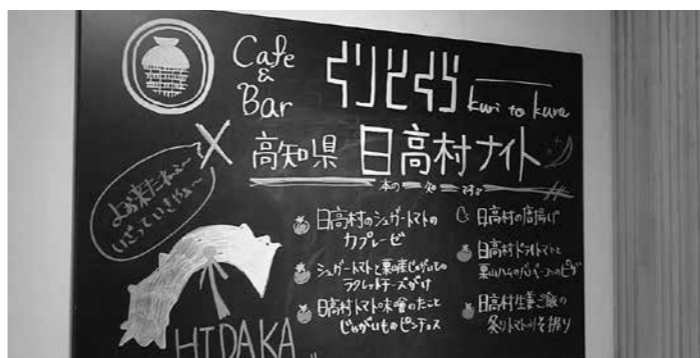 Cafe
&
Bar
くりとくら
kuri to kura
×
高知県 日高村ナイト
よぉ来たねぇ〜
日高村のシュガートマトの
カプレーゼ
シュガートマトと栗山産じゃがいもの
ラクレットチーズがけ
日高村トマト味噌のたこと
じゃがいものピンチョス
日高村の唐揚げ
日高村ドライトマトと
栗山ハムの
日高村生姜ご飯の
炙りトマト
HIDAKA